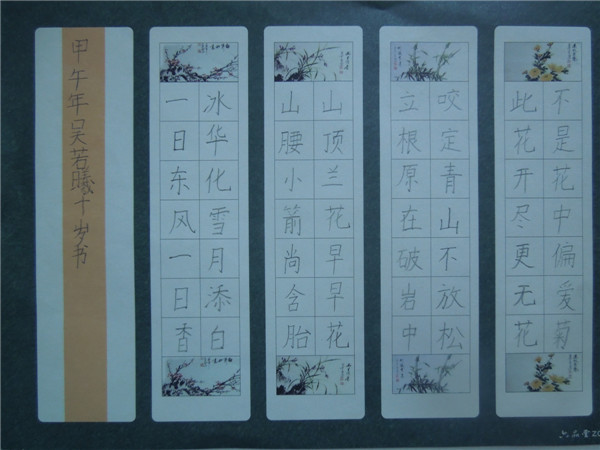 不是花中偏爱菊
此花开尽更无花
咬定青山不放松
立根原在破岩中
山顶兰花早早花
山腰小箭尚含胎
冰华化雪月添白
一日东风一日香
甲午年吴若曦十岁书